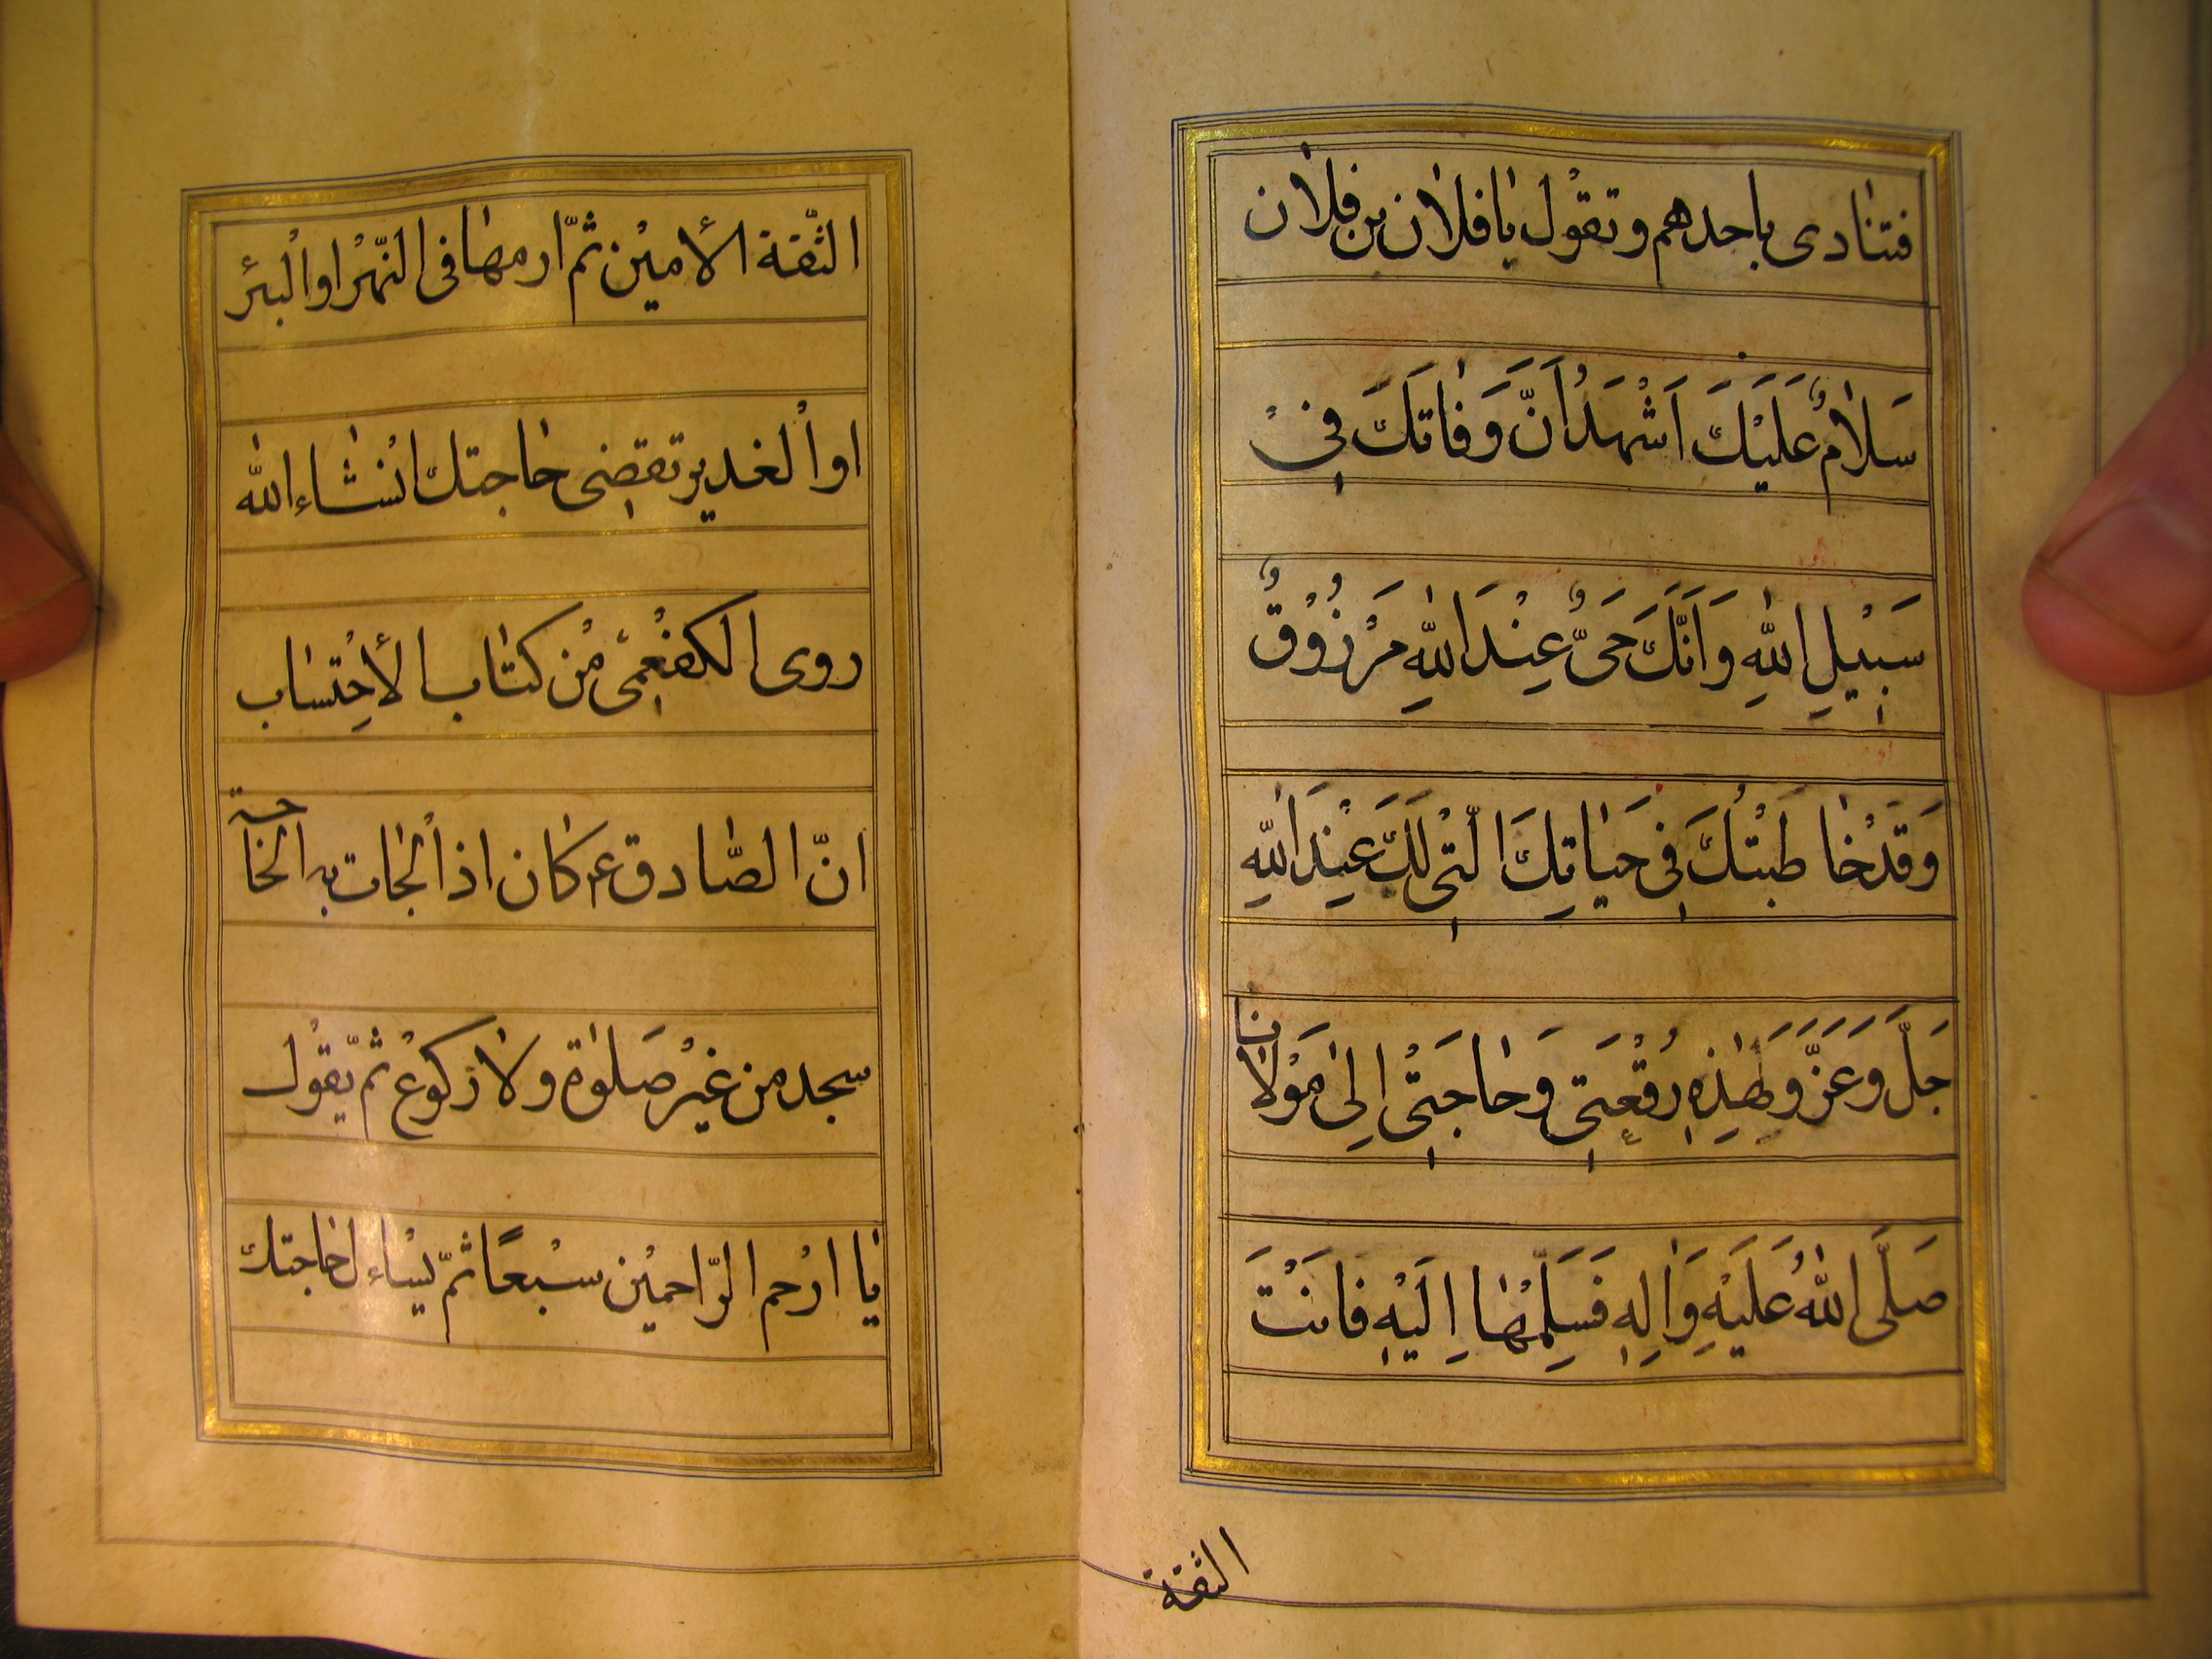 فتنادى باحدهم وتقول يا فلان بن فلان
سَلامٌ عَلَيْكَ اَشْهَدُ اَنَّ وَفاتَكَ فِيْ
سَبيْلِ اللّهِ وَاَنَّكَ حَيٌّ عِنْدَ اللّهِ مَرْزُوْقٌ
وَقَدْ خاطَبْتُكَ فِي حَياتِكَ الَّتِيْ لَكَ عِنْدَ اللّهِ
جَلَّ وَعَزَّ وَهٰذِهِ رُقْعَتِي وَحاجَتِيْ اِلىٰ مَوْلانا
صَلَّى اللّهُ عَلَيْهِ وَاٰلِهِ فَسَلِّمْها اِلَيْهِ فَانْتَ
الثقة
الثّقة الأمين ثمّ ارمها فى النّهر او البئر
او الغدير تقضى حاجتك انشاء اللّه
روى الكفعمىّ من كتاب الأحتساب
انّ الصّادق ع كان اذا لجات به الحاجة
سجد من غير صلوة ولا ركوع ثمّ يقول
يا ارحم الرّاحمين سبعًا ثمّ يساء ل حاجتك